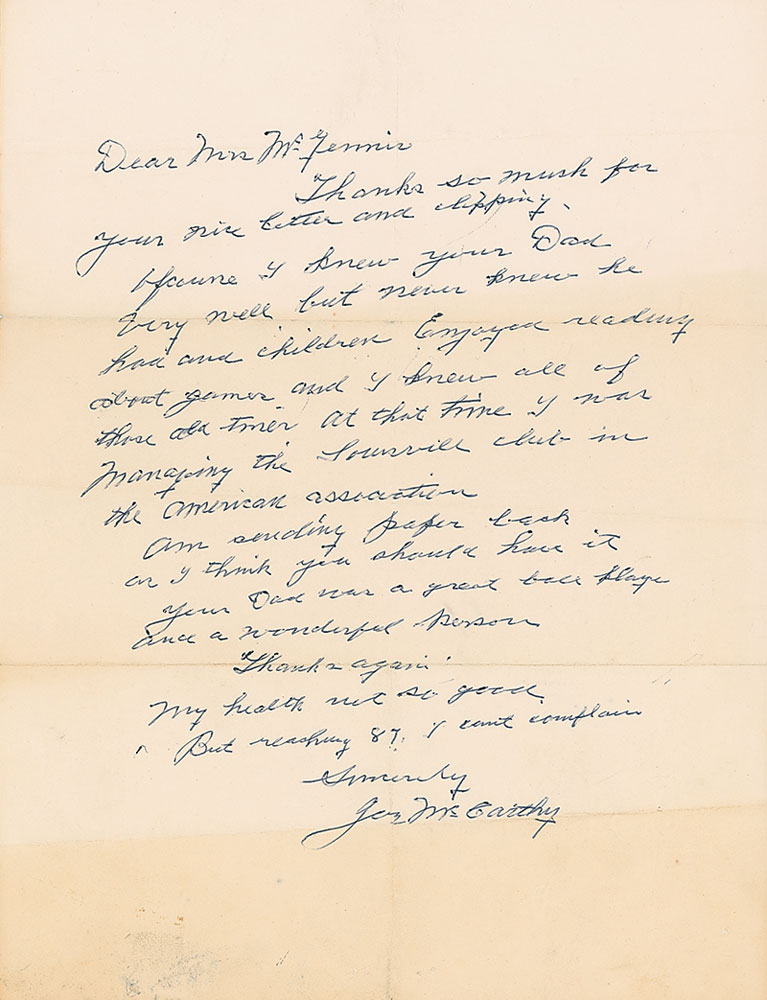 Dear Mrs Mc Gennis
Thanks so mush for
your nice letter and clipping.
Ofcourse I knew your Dad
Very well but never knew he
had and children Enjoyed reading
about games and I knew all of
those old timer At that time I was
Managing the Louisville club in
the American association
Am sending paper back
as I think you should have it
your Dad was a great ball Player
and a wonderful Person
Thanks again
My health not so good
But reaching 87. I cant complain
Sincerely
Joe McCarthy